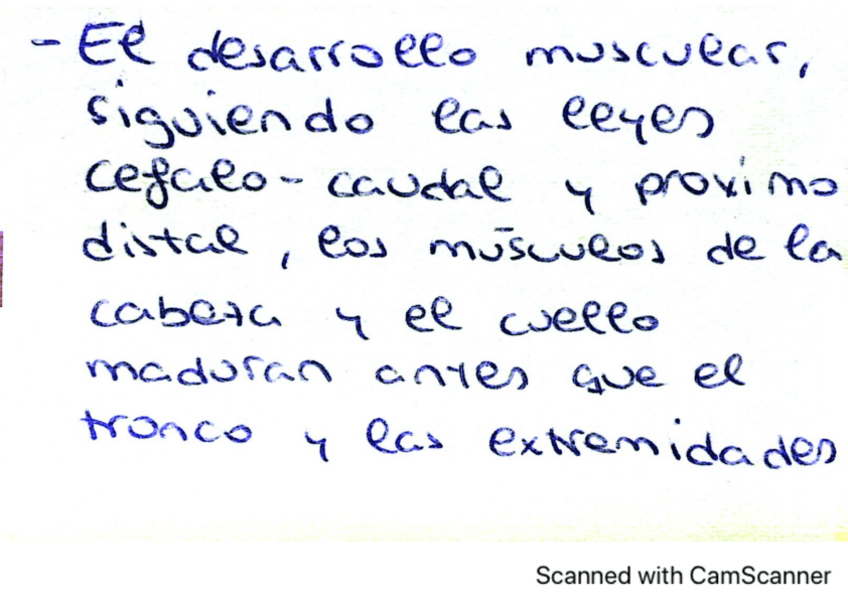 - El desarrollo muscular,
siguiendo las leyes
cefalo-caudal y proximo
distal, los músculos de la
cabeza y el cuello
maduran antes que el
tronco y las extremidades
Scanned with CamScanner